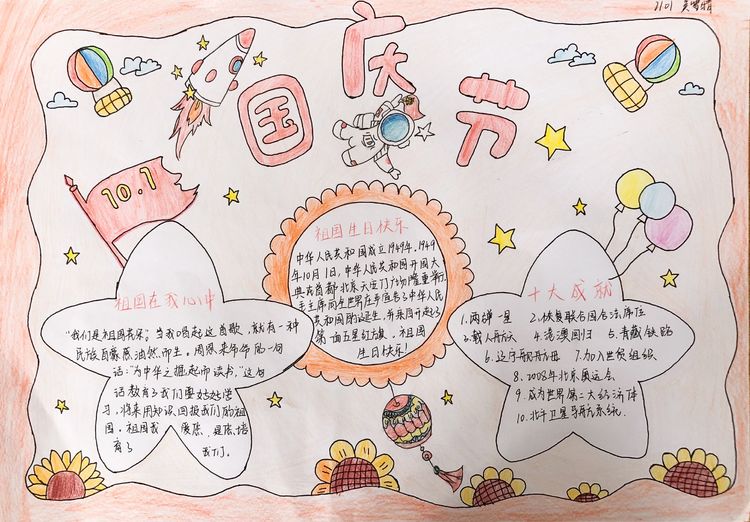 1101
国庆节
10.1
祖国在我心中
"我们是祖国花朵,当我唱起这首歌,就有一种
民族自豪感油然而生。周恩来爷爷的一句
话:"为中华之崛起而读书。"这句
话教育了我们要好好学
习,将来用知识回报我们的祖
国。祖国我 是您培
育了 我们。
祖国生日快乐
中华人民共和国成立1949年,1949
年10月1日,中华人民共和国开国大
典在首都北京天安门广场隆重举行,
毛主席向全世界庄严宣告了中华人民
共和国的诞生,并亲自升起了
第一面五星红旗。祖国
生日快乐!
十大成就
1.两弹一星 2.恢复联合国合法席位
3.载人航天 4.港澳回归 5.青藏铁路
6.辽宁号航母 7.加入世贸组织
8.2008年北京奥运会
9.成为世界第二大经济体
10.北斗卫星导航系统.